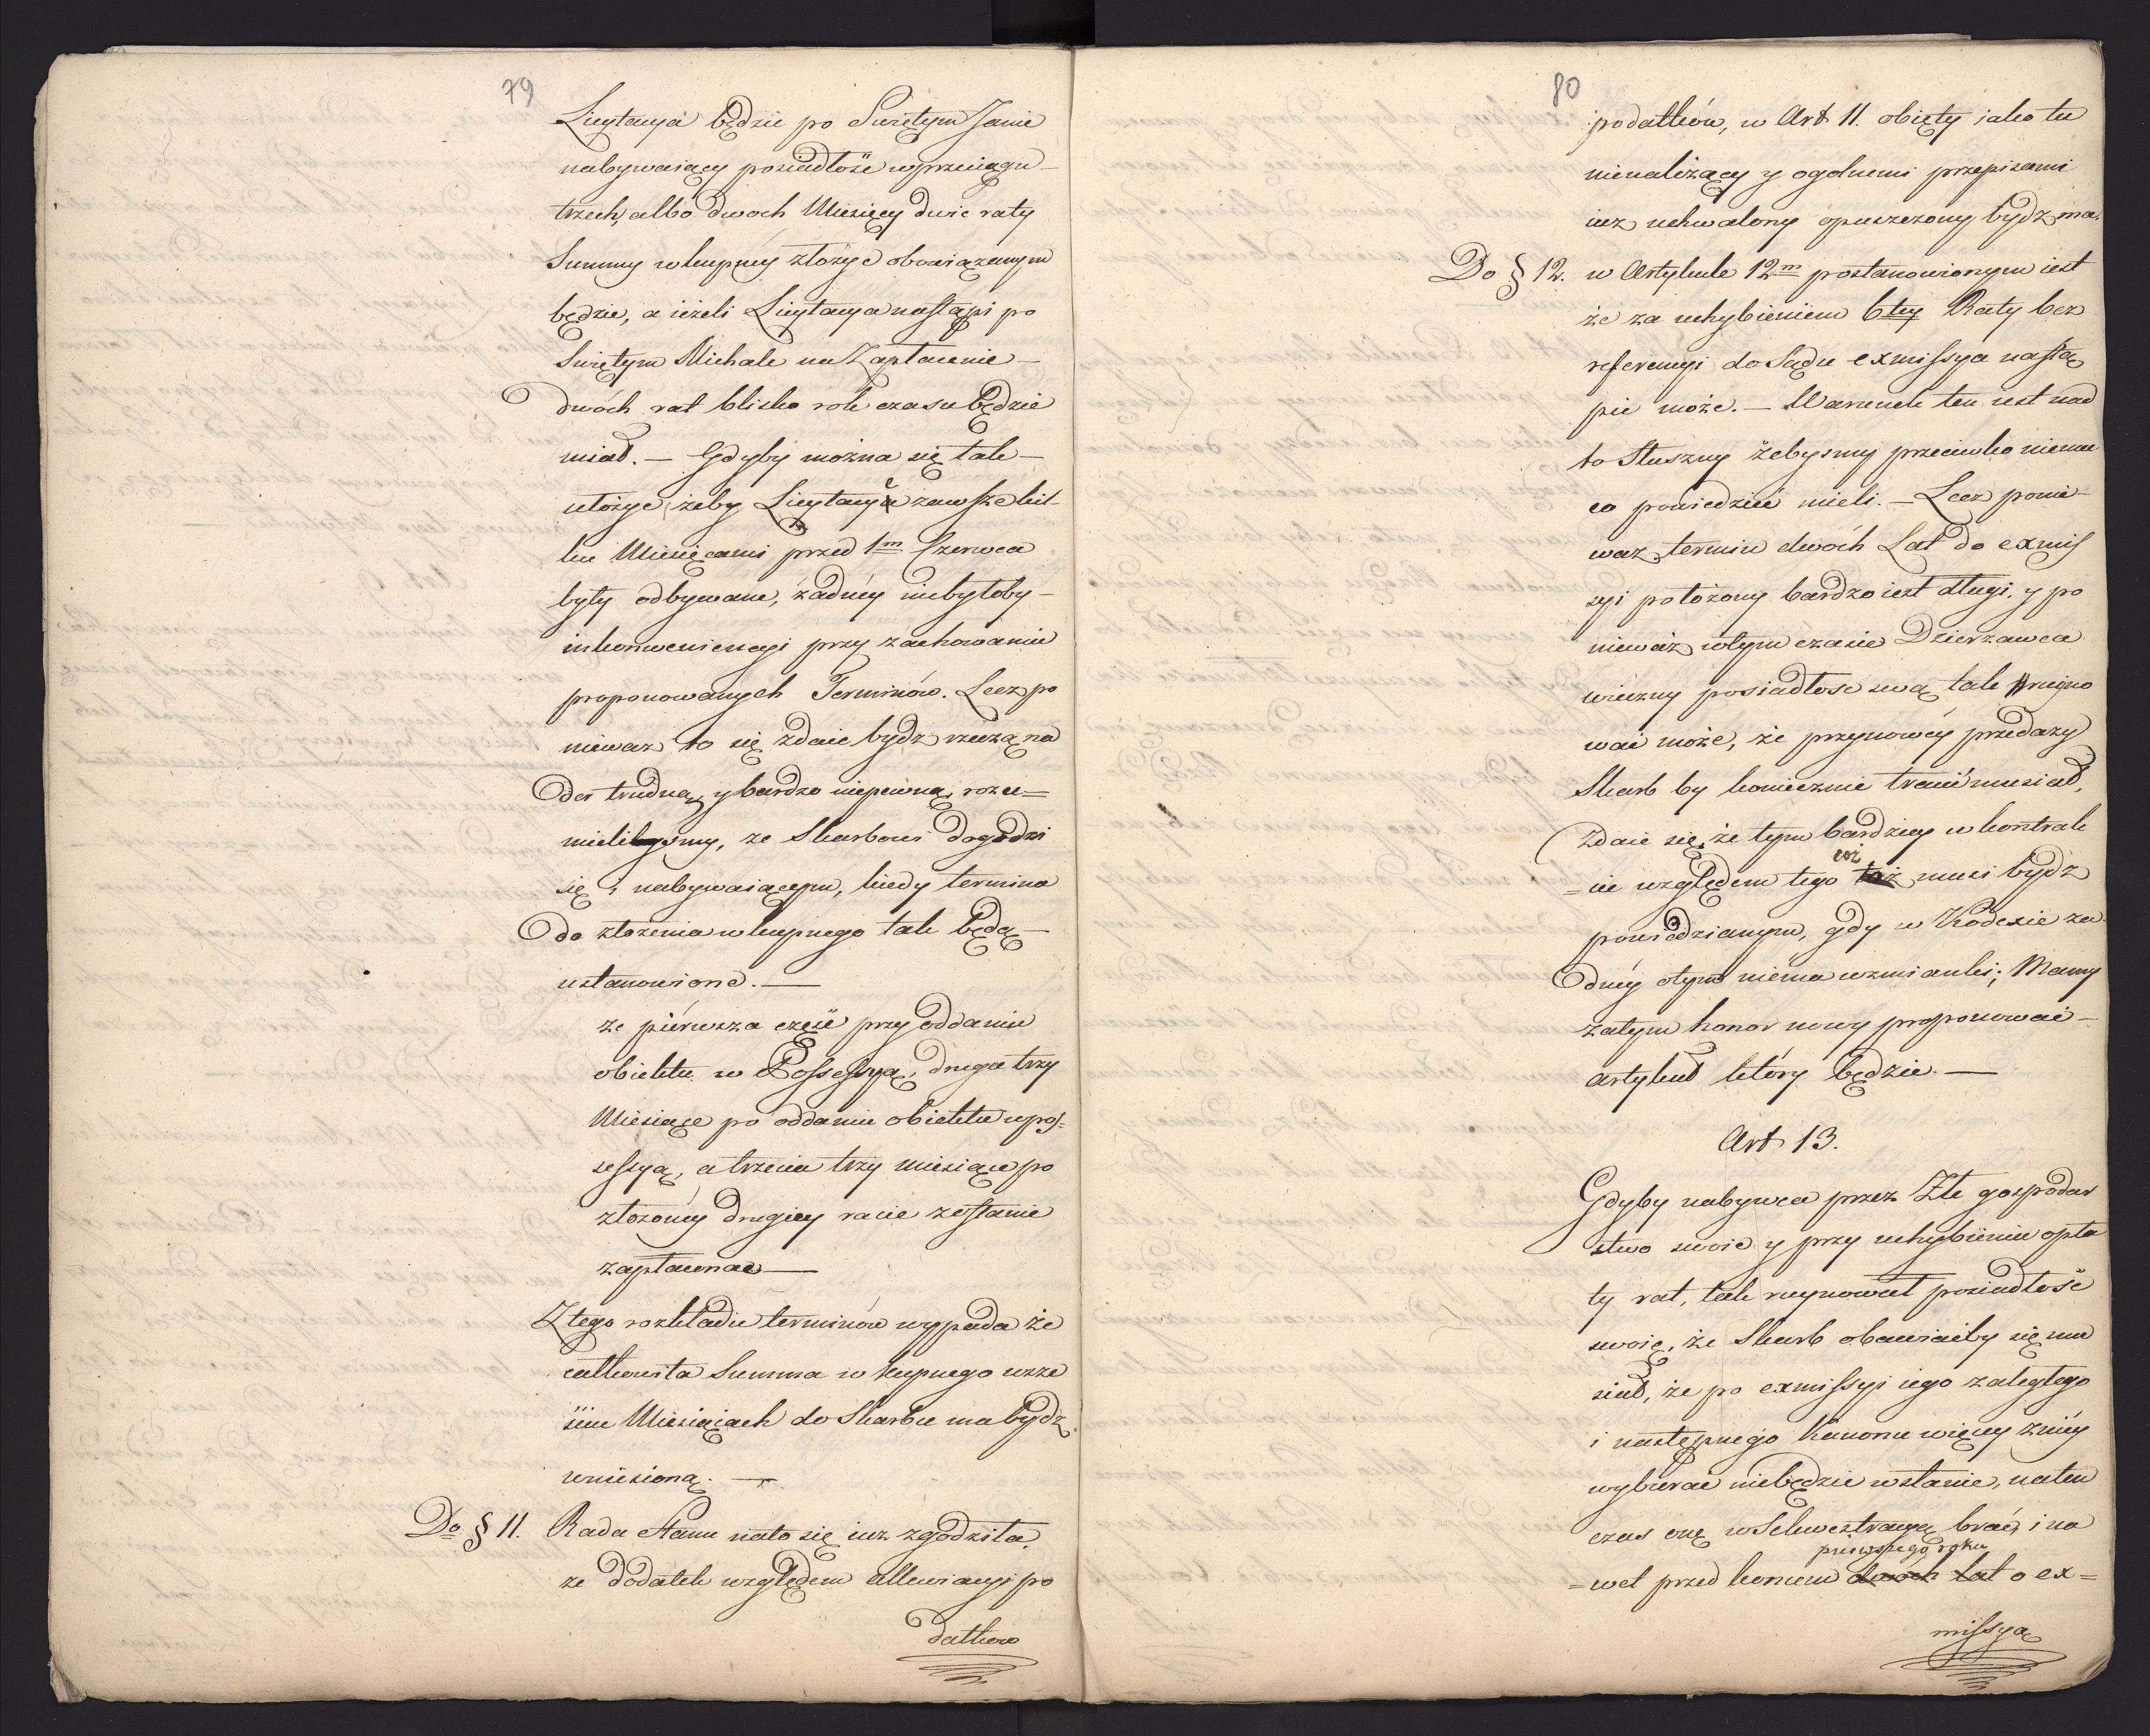 79
Licytacya będzie po Swiętym Janie
nabywaiący posiadłość w przeciągu
trzech, albo dwoch Miesięcy dwie raty
Summy wkupnéy złożyc obowiązanym
będzie, a ieżeli Licytacya nastąpi po
Swiętym Michale na Zapłacenie
dwóch rat blisko rok czasu będzie
miał. — Gdyby można się tak
ułożyc, żeby Licytacye zawsze kil-
ku Miesięcami przed 1m Czerwca
były odbywane, żadnéy niebyłoby
inkonweniencyi przy zachowaniu
proponowanych Terminów. Lecz po
niewaz to się zdaie bydz rzeczą na
der trudną, y bardzo niepewną, rozu=
mieliśmy, ze Skarbowi dogodzi
się i nabywaiącemu, kiedy termina
do złożenia wkupnego tak będą
ustanowione. —
ze piérwsza część przy oddaniu
obiektu w Possessyą, druga trzy
Miesiące po oddaniu obiektu w pos=
sessyą, a trzecia trzy miesiące po
złożonéy drugiey racie zostanie
zapłacona —
Z tego rozkładu terminów wypada że
całkowita Summa w kupnego w sze
ściu Miesiącach do Skarbu ma bydz
wniesioną. —
Do § 11. Rada Stanu nato się iuz zgodziła,
ze dodatek względem allewiacyi po
datkow
80
podatków, w Art 11. obięty iako tu
nienależący y ogolnemi przepisami
iuz uchwalony opuszczony bydz ma.
Do § 12. w Artykule 12m postanowionym iest
że za uchybieniem 6tey Raty bez
referencyi do Sądu exmissya nastą
pić może. — Warunek ten iest nad
to Słuszny żebysmy przeciwko niemu
co powiedzieć mieli. — Lecz ponie-
waz termin dwóch Lat do exmis
syi położony bardzo iest długi, y po
nieważ w tym czasie Dzierzawca
wieczny posiadłosc swą tak ruyno
wać może, że przy nowéy przedazy
Skarb by koniecznie tracić musiał,
Zdaie się, że tym bardziey w kontrak
=cie względem tego coż musi bydz
powiedzianym, gdy w Kodexie ża
dnéy o tym niema wzmianki; Mamy
zatym honor nowy proponować
artykuł który będzie. —
Art 13.
Gdyby nabywca przez Złe gospodar
stwo swoie y przy uchybieniu opła
ty rat, tak ruynował posiadłość
swoię, że Skarb obawiaćby się mu
siał, że po exmissyi iego zaległego
i następnego Kanonu więcey z niéy
wybierac niebędzie w stanie, naten
czas onę w Sekwestracyą brać, i na
pierwszego roku
=wet przed koncem dwoch lat o ex=
missyą